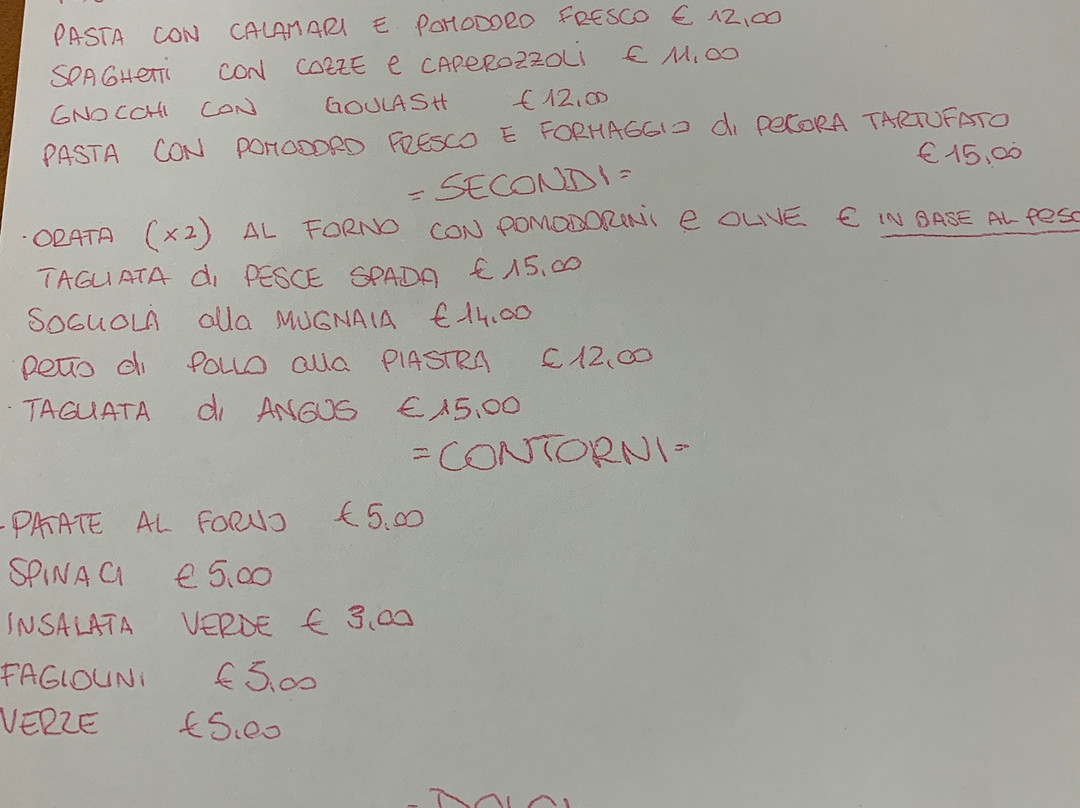 PASTA CON CALAMARI E POMODORO FRESCO € 12,00
SPAGHETTI CON COZZE e CAPEROZZOLI € 11,00
GNOCCHI CON GOULASH € 12,00
PASTA CON POMODORO FRESCO E FORMAGGIO di PECORA TARTUFATO
€ 15,00
= SECONDI =
· ORATA (x2) AL FORNO CON POMODORINI e OLIVE € IN BASE AL PESO
TAGLIATA di PESCE SPADA € 15,00
SOGLIOLA alla MUGNAIA € 14,00
Petto di POLLO alla PIASTRA € 12,00
· TAGLIATA di ANGUS € 15,00
= CONTORNI =
- PATATE AL FORNO € 5,00
SPINACI € 5,00
INSALATA VERDE € 3,00
FAGIOLINI € 5,00
VERZE € 5,00
- DOLCI